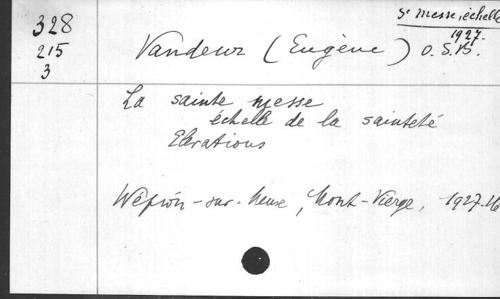 Sᵉ messe, échelle
1927.
328
215
3
Vandeur (Eugène) O.S.B.
La sainte messe
échelle de la sainteté
Elevations
Wépion-sur-Meuse, Mont-Vierge, 1927.